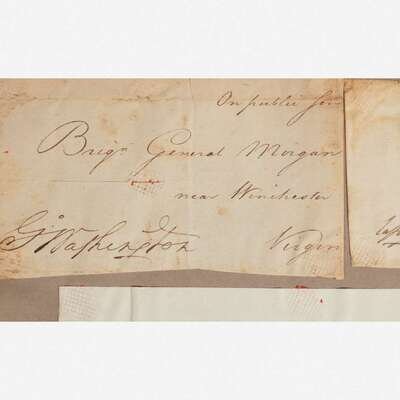 On public
Brigr General Morgan
near Winchester
Go Washington
Virgin